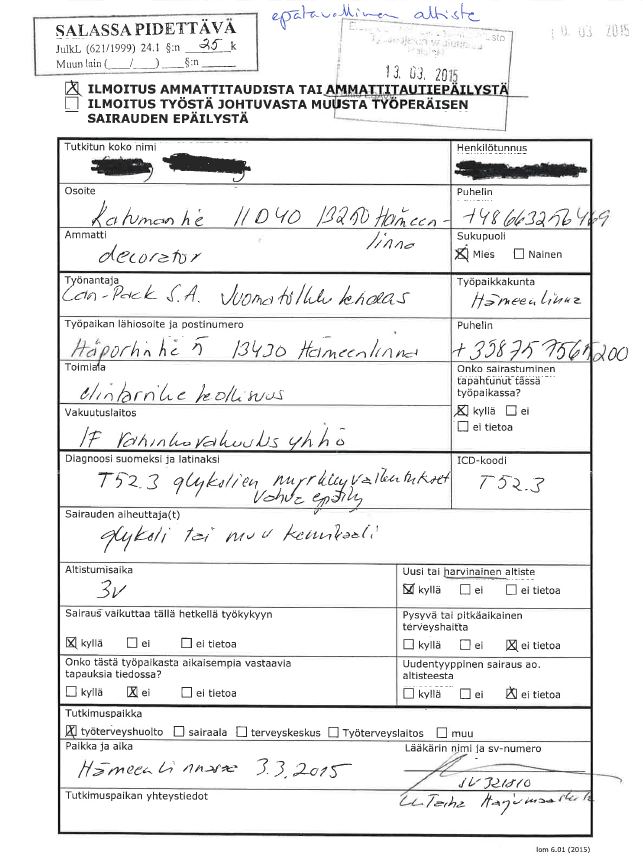 epätavallinen altiste
SALASSA PIDETTÄVÄ
JulkL (621/1999) 24.1 §:n 25 k
Muun lain (___/___) ___§:n
03 2015
13. 03. 2015
☒ ILMOITUS AMMATTITAUDISTA TAI AMMATTITAUTIEPÄILYSTÄ
☐ ILMOITUS TYÖSTÄ JOHTUVASTA MUUSTA TYÖPERÄISEN
SAIRAUDEN EPÄILYSTÄ
Tutkitun koko nimi
Henkilötunnus
Osoite
Puhelin
11 D 40 13250 Hämeen-
linna
+48663256469
Ammatti
decorator
Sukupuoli
☒ Mies ☐ Nainen
Työnantaja
Can-Pack S.A.
Työpaikkakunta
Hämeenlinna
Työpaikan lähiosoite ja postinumero
5 13430 Hämeenlinna
Puhelin
Toimiala
elintarviketeollisuus
Onko sairastuminen
tapahtunut tässä
työpaikassa?
☒ kyllä ☐ ei
☐ ei tietoa
Vakuutuslaitos
IF vahinkovakuutusyhtiö
Diagnoosi suomeksi ja latinaksi
T52.3 glykolien myrkkyvaikutukset
vahva epäily
ICD-koodi
T52.3
Sairauden aiheuttaja(t)
glykoli tai muu kemikaali
Altistumisaika
3v
Uusi tai harvinainen altiste
☒ kyllä ☐ ei ☐ ei tietoa
Sairaus vaikuttaa tällä hetkellä työkykyyn
☒ kyllä ☐ ei ☐ ei tietoa
Pysyvä tai pitkäaikainen
terveyshaitta
☐ kyllä ☐ ei ☒ ei tietoa
Onko tästä työpaikasta aikaisempia vastaavia
tapauksia tiedossa?
☐ kyllä ☒ ei ☐ ei tietoa
Uudentyyppinen sairaus ao.
altisteesta
☐ kyllä ☐ ei ☒ ei tietoa
Tutkimuspaikka
☒ työterveyshuolto ☐ sairaala ☐ terveyskeskus ☐ Työterveyslaitos ☐ muu
Paikka ja aika
Hämeenlinnassa 3.3.2015
Lääkärin nimi ja sv-numero
SV 321810
Tutkimuspaikan yhteystiedot
lom 6.01 (2015)